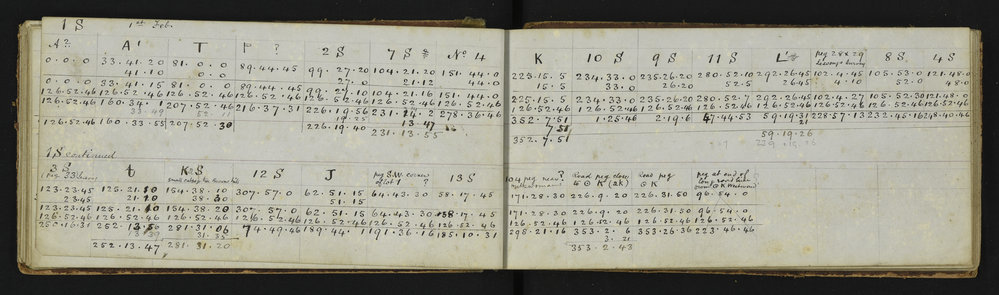 1 S 1st Feb.
A? A' T P? 2 S 7 S No. 4
0.0.0 33.41.20 81.0.0 89.44.45 99.27.20 104.21.20 151.44.0
41.10 0.0 27.0 21.12 44.0
0.0.0 33.41.15 81.0.0 89.44.45 99.27.10 104.21.16 151.44.0
126.52.46 126.52.46 126.52.46 126.52.46 126.52.46 126.52.46 126.52.46
126.52.46 160.34.1 207.52.46 216.37.31 226.19.56 231.14.2 278.36.46
33.49 52.11 19.25 13.47
126.52.46 160.33.55 207.52.30 226.19.40 231.13.55
1S continued
3 S t K S 12 S J peg S.W. corner of lot 1 ? 13 S
123.23.45 125.21.10 154.38.10 307.57.0 62.51.15 64.43.30 58.17.45
23.45 21.10 38.30 51.15
123.23.45 125.21.10 154.38.20 307.57.0 62.51.15 64.43.30 58.17.45
126.52.46 126.52.46 126.52.46 126.52.46 126.52.46 126.52.46 126.52.46
250.16.31 252.13.56 281.31.06 74.49.46 189.44.1 191.36.16 185.10.31
252.13.47 281.31.20
K 10 S 9 S 11 S L peg 28 & 29 8 S 4 S
225.15.5 234.33.0 235.26.20 280.52.10 292.26.45 102.4.45 105.53.0 121.48.0
15.5 33.0 26.20 52.5 26.45 4.10 52.0 48.0
225.15.5 234.33.0 235.26.20 280.52.7 292.26.45 102.4.27 105.52.30 121.48.0
126.52.46 126.52.46 126.52.46 126.52.46 126.52.46 126.52.46 126.52.46 126.52.46
352.7.51 1.25.46 2.19.6 47.44.53 59.19.31 228.57.13 232.45.16 248.40.46
7.51 21
352.7.51 59.19.26
104 peg near ? Road peg close to ⊙ K (2k) Road peg ⊙ K peg at end of long road line
171.28.30 226.9.20 226.31.50 96.54.0
171.28.30 226.9.20 226.31.50 96.54.0
126.52.46 126.52.46 126.52.46 126.52.46
298.21.16 353.2.6 353.26.36 223.46.46
3.21
353.2.43